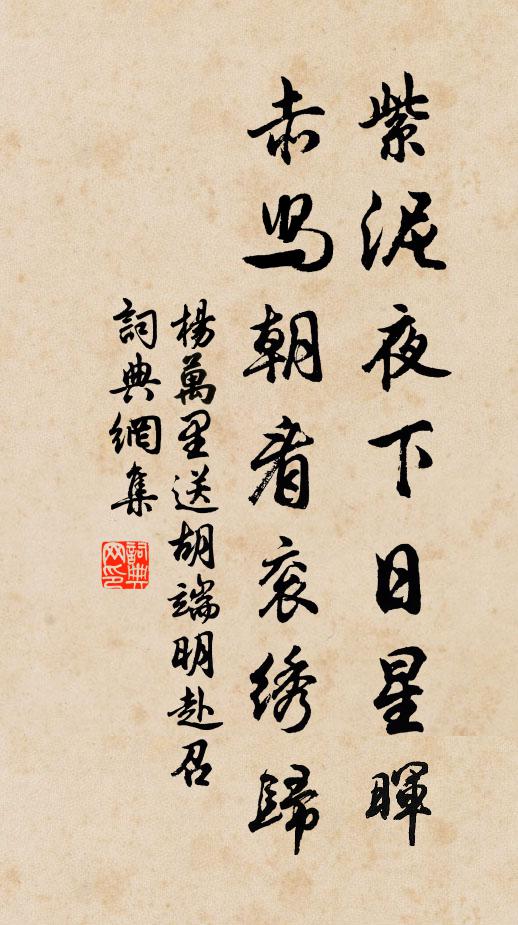 紫泥夜下日星暉
赤舄朝看衮绣歸
楊萬里送胡端明赴召
詞典網集
詞典网印